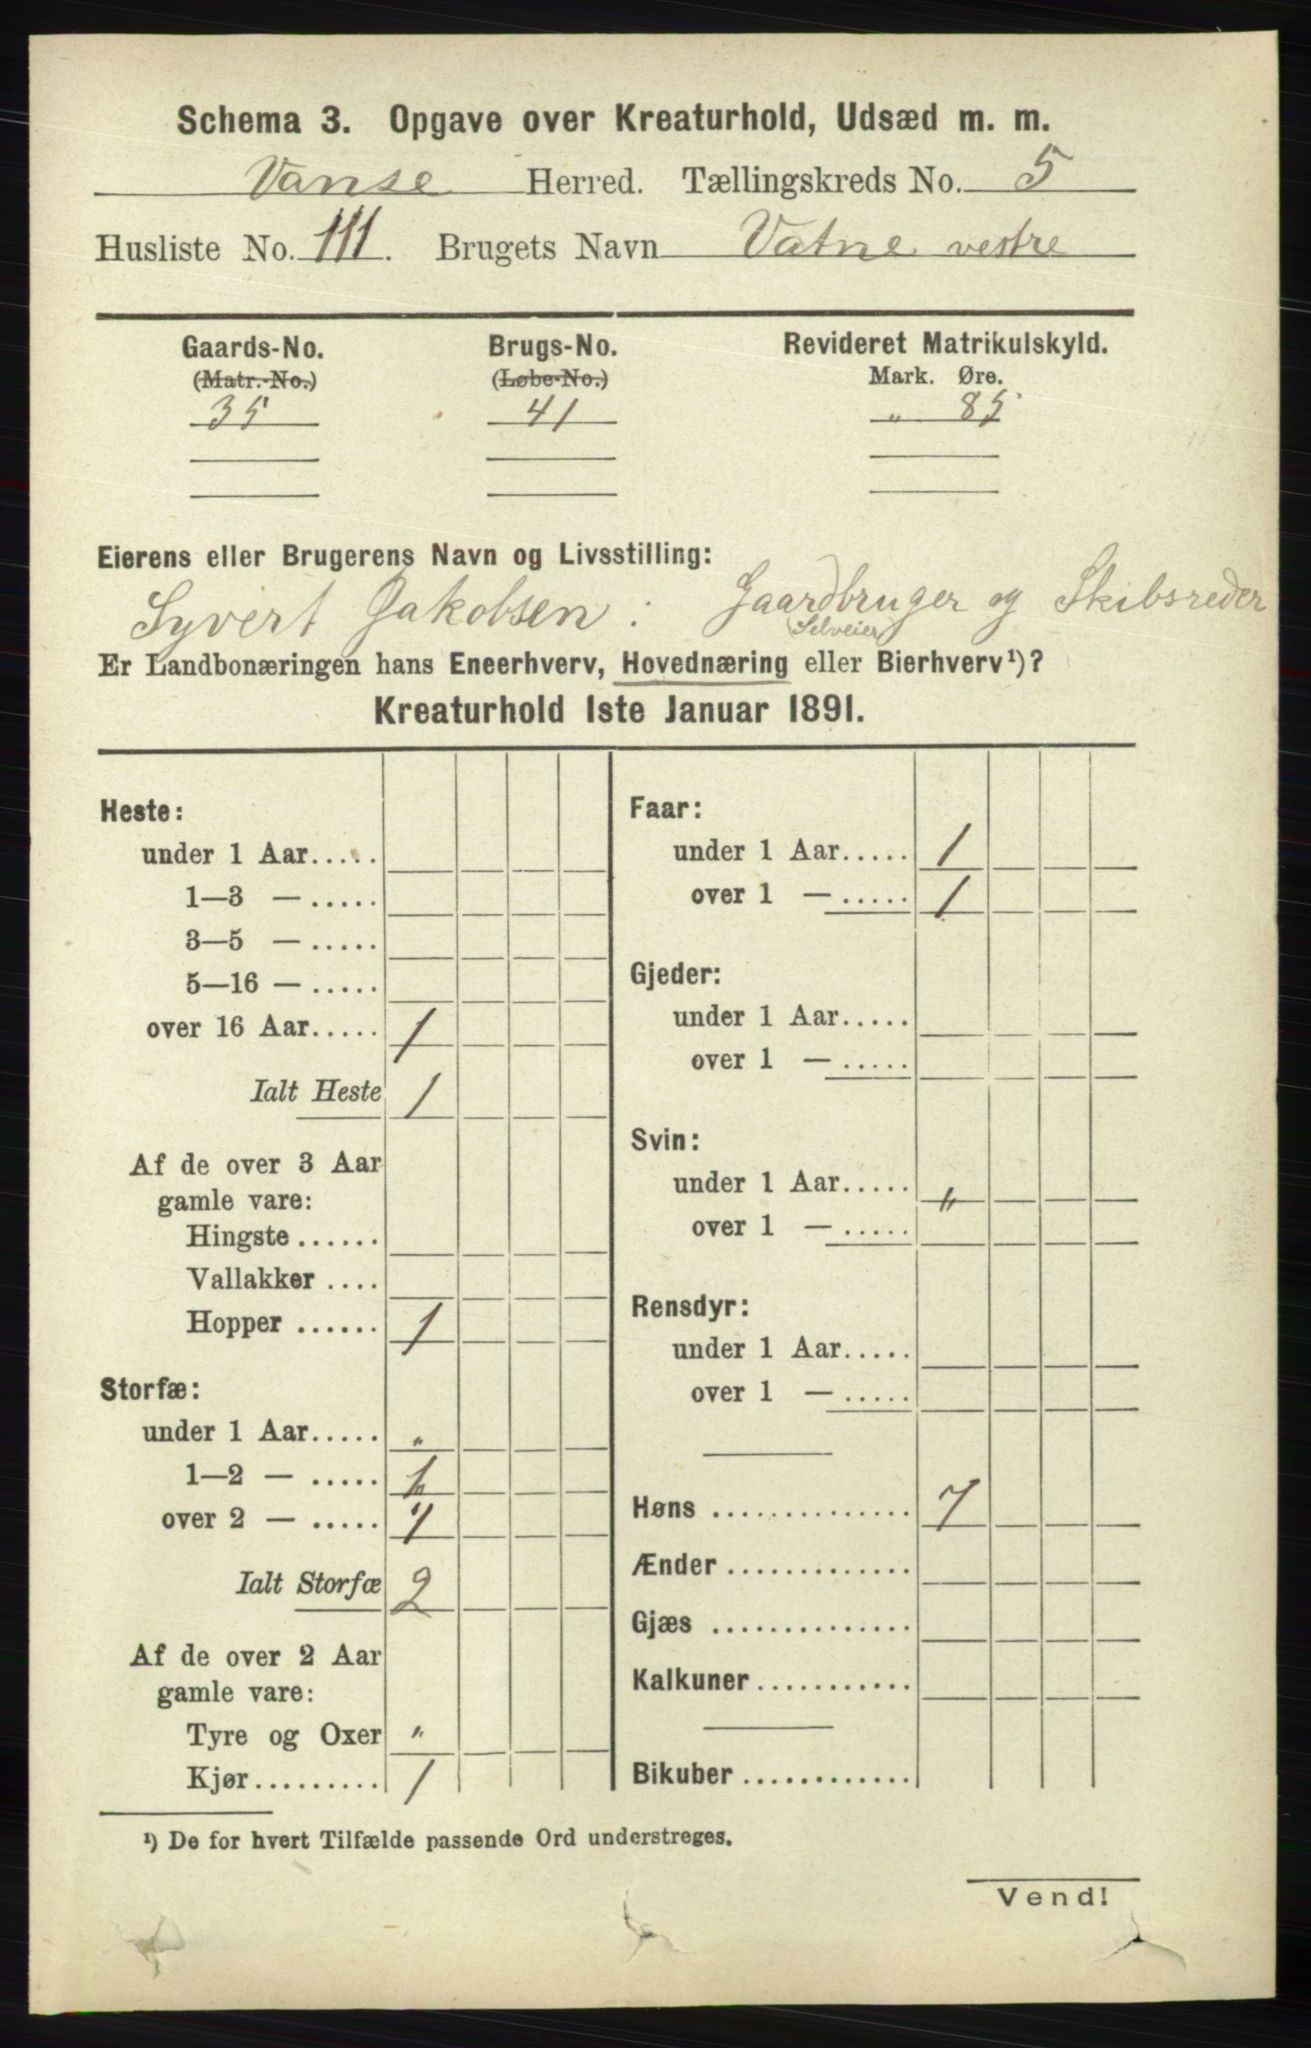 Schema 3. Opgave over Kreaturhold, Udsæd m. m.
Vanse Herred. Tællingskreds No. 5
Husliste No. 111. Brugets Navn Vatne vestre
Gaards-No. Brugs-No. Revideret Matrikulskyld.
(Matr.-No.) (Løbe-No.) Mark. Øre.
35 41 „ 85
Eierens eller Brugerens Navn og Livsstilling:
Syvert Jakobsen : Gaardbruger og Skibsreder
(Selveier)
Er Landbonæringen hans Eneerhverv, Hovednæring eller Bierhverv¹)?
Kreaturhold 1ste Januar 1891.
Heste:
under 1 Aar.....
1—3 — .....
3—5 — .....
5—16 — .....
over 16 Aar..... 1
Ialt Heste 1
Af de over 3 Aar
gamle vare:
Hingste ......
Vallakker ....
Hopper ...... 1
Storfæ:
under 1 Aar..... „
1—2 — ..... 1
over 2 — ..... 1
Ialt Storfæ 2
Af de over 2 Aar
gamle vare:
Tyre og Oxer „
Kjør......... 1
Faar:
under 1 Aar..... 1
over 1 — ..... 1
Gjeder:
under 1 Aar.....
over 1 — .....
Svin:
under 1 Aar..... „
over 1 — .....
Rensdyr:
under 1 Aar.....
over 1 — .....
Høns .............. 7
Ænder .............
Gjæs ..............
Kalkuner ...........
Bikuber ............
¹) De for hvert Tilfælde passende Ord understreges.
Vend!